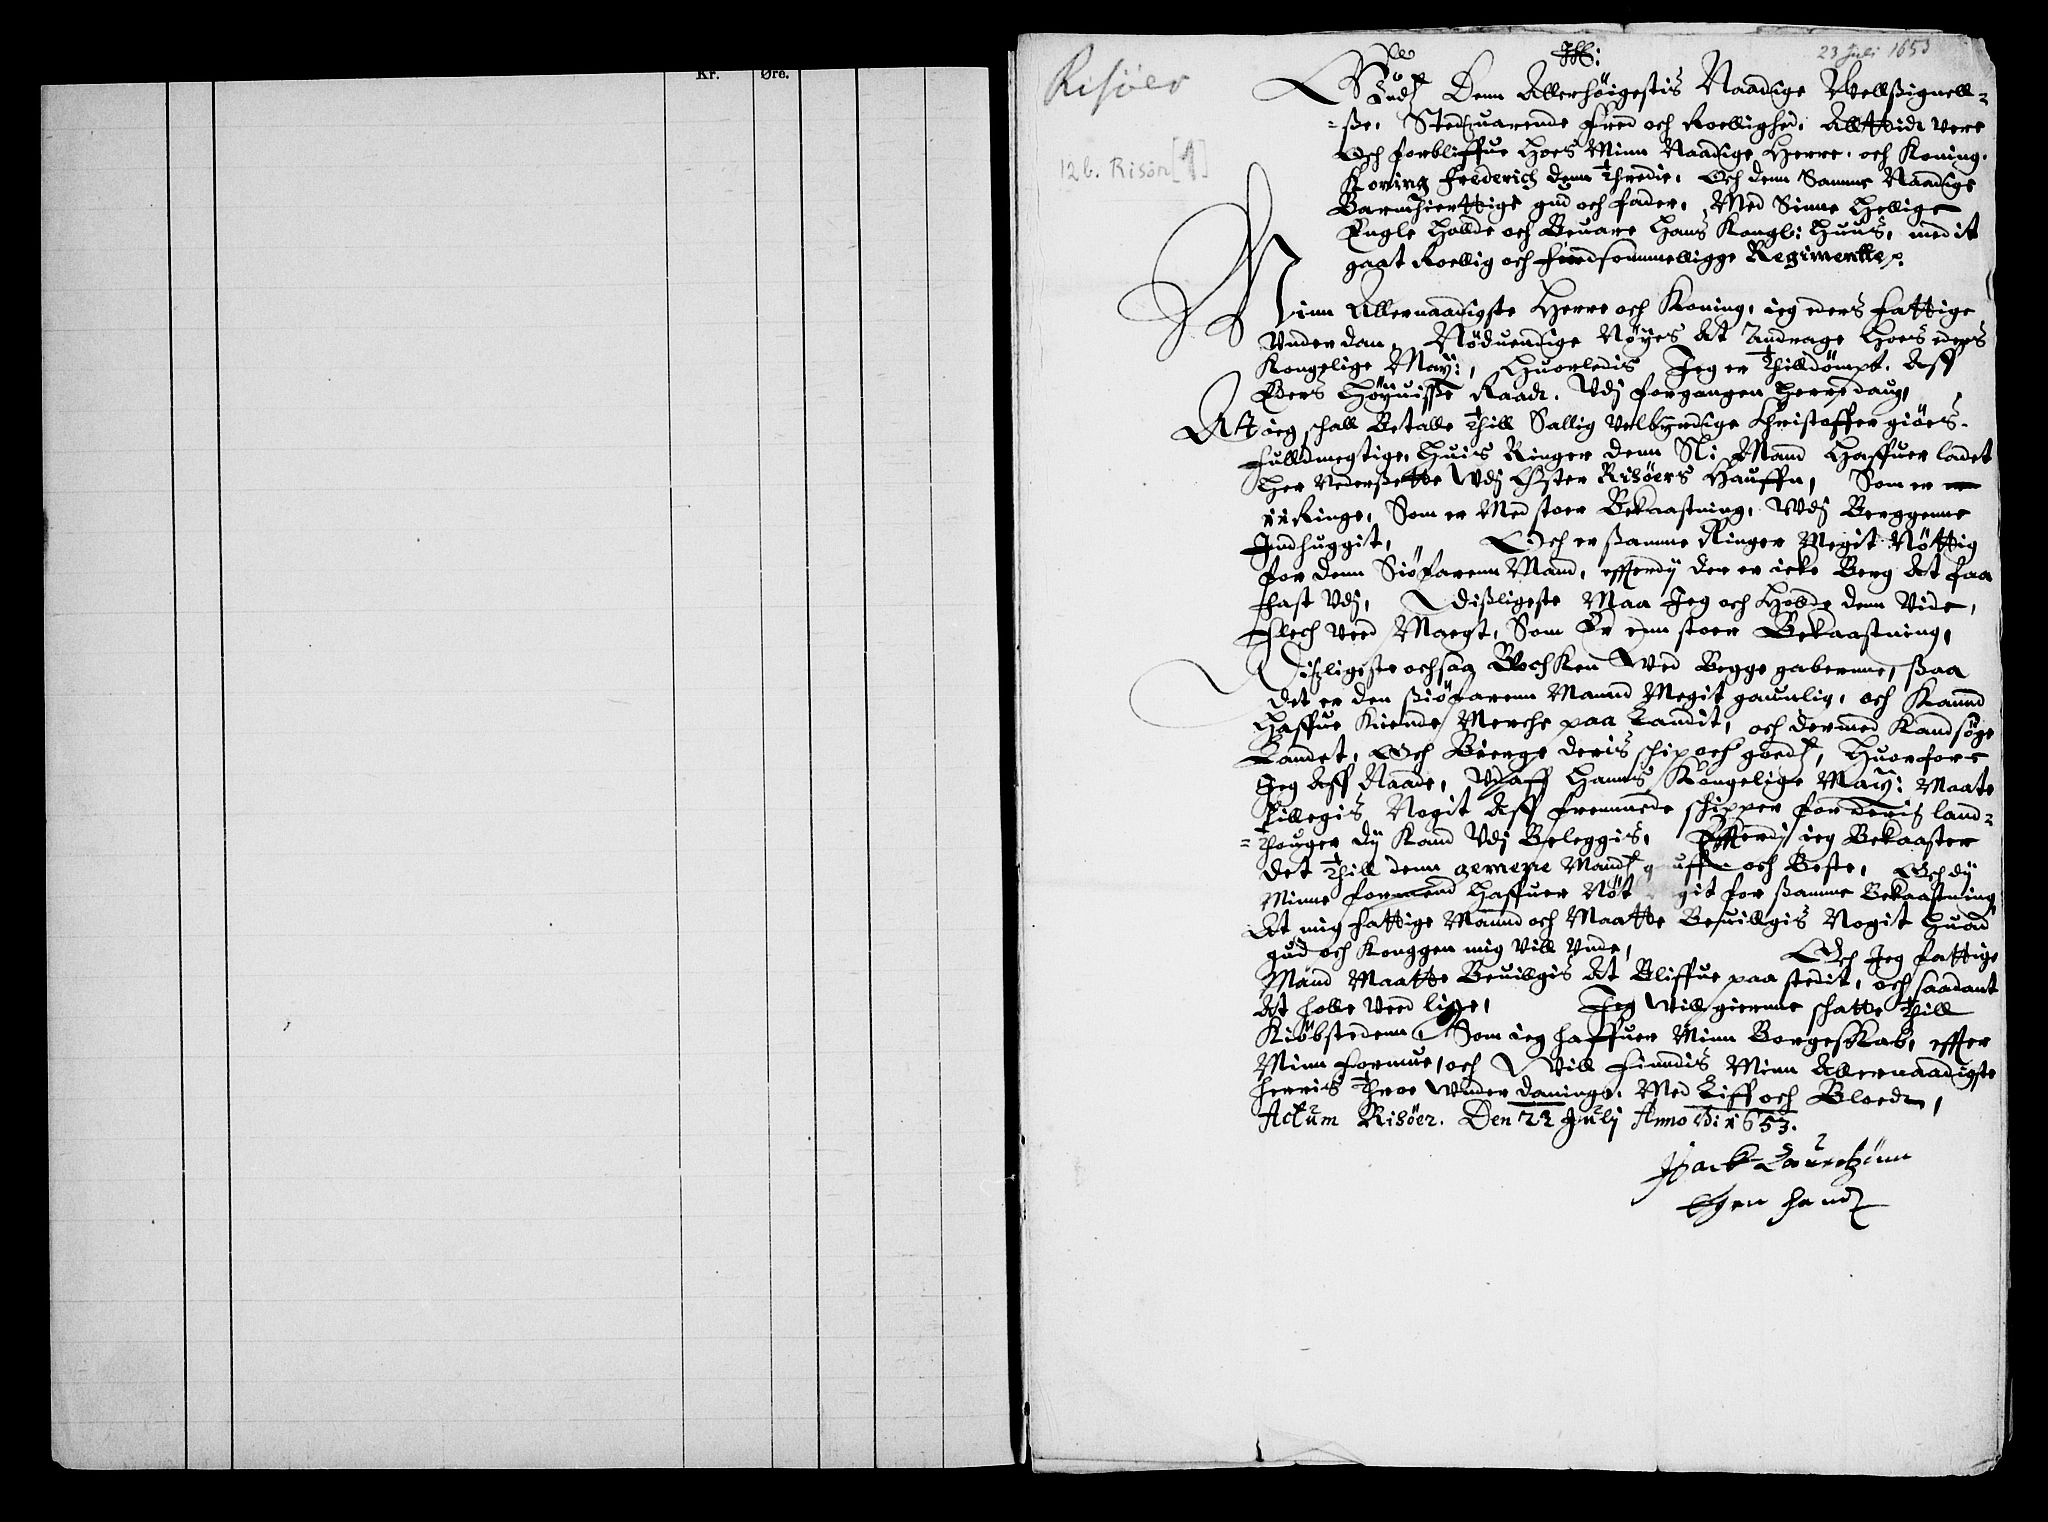 Kr.
Øre.
Risöer
23 Juli 1653
12b. Risör [1]
Jhs:
Gudz Denn Allerhöigestis Naadige Vellßignell-
-ße. Stedzuarende fred och Roellighed. Alltidt vere
Och forbliffue Hoes Minn Naadige Herre. och Koning.
Koning Frederich denn thredie. Och denn Samme Naadige
Barmhierttige gud och fader, Med Sinne Hellige
Engle Holde och Beuare Hans Kongl: Huus, med it
gaat Roellig och fredsommelligge Regimente.
Minn Allernaadigste Herre och Koning, ieg eders fattige
Vnderdan, Nöduendige Nöyes At Andrage Hoes eders
Kongelige May:, Huorledis Jeg er thilldömpt. Aff
Eders Höyuisse Raadt. Vdj forgangen Herredaug,
At ieg schall Betalle thill Sallig Velbyrdige Christoffer giöes.
fulldmegtige, Huis Ringer denn Sl: Mand Haffuer ladet
Her Nedersette Vdj Öster Risöers Hauffn, Som er
11 Ringe, Som er Med stoer Bekaastning, Vdj Berggenne
Jndhuggit, Och er ßamme Ringer Megit Nöttig
for denn Siöfarenn Mand, effterdj der er icke Berg At faa
fhast Vdj, Dißligeste Maa Jeg och Holde denn Vide,
flech Ved Magt, Som Er enn stoer Bekaastning,
Dißligeste ochsaa Wochken Ved Begge gaberne, ßaa
det er den ßiöfarenn Mannd Megit gaunlig, och Kannd
Haffue Kiende Merche paa Landit, och dermed Kand söge
Landet, Och Bierge deris schip och goedz, Huorfore
Jeg Aff Naade, Vdaff Hanns Kongelige May: Maate
tillegis Nogit Aff fremmede schipper for deris land-
-thouger dy Kand Vdj Beleggis, Effterdj ieg Bekaaster
det thill denn gemene Mandz och Beste, Och dj
Minne formend Haffuer Nöt for ßamme Bekaastning,
At mig fattige Mannd och Maatte Beuillgis Nogit Huad
gud och Konggen mig Vill Vnde, Och Jeg fattige
Mand Maatte Beuillgis At Bliffue paa stedit, och saadant
At holle Ved lige, Jeg Will gierne schatte thill
Kiöbstedenn, Som ieg haffuer Minn Borgeskab, effter
Minn formue, och Will findis Minn Allernaadigste
Herris throe Vnder daninge, Med Liff och Bloedt,
Actum Risöer. Den 23 Julj Anno Di 1653.
Jsack Lauretzönn
Egen Handz